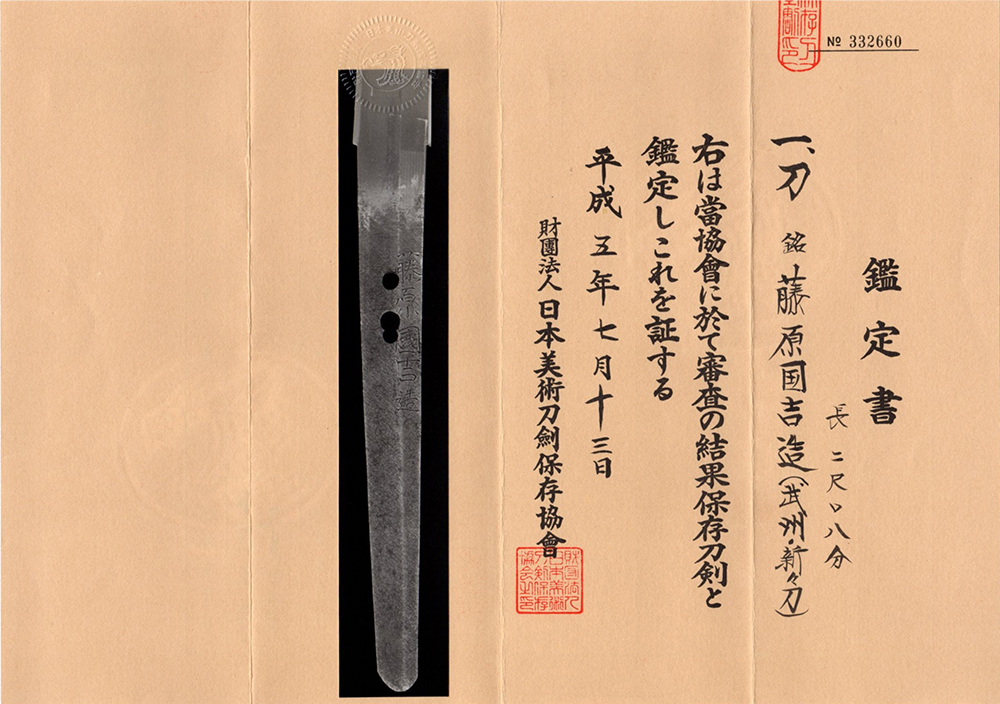 鑑定書
№ 332660
一、刀 銘 藤原国吉造(武州・新々刀)
長 二尺〇八分
右は當協會に於て審査の結果保存刀剣と
鑑定しこれを証する
平成五年七月十三日
財團法人日本美術刀劍保存協會
藤原國吉造